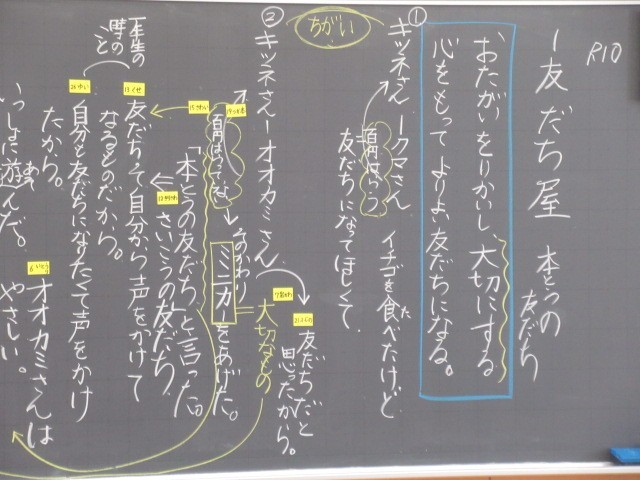 P10
友だち屋 本とうの
友だち
おたがいをりかいし、大切にする
心をもってよりよい友だちになる。
ちがい
①
キツネさんークマさん イチゴを食べたけど
た
百円はらう
友だちになてほしくて
②
キツネさんーオオカミさん
友だちだと
思ったから。
大切なもの
そのかわり
ミニカーをあげた。
「本とうの友だち」と言った。
さいこうの友だち
友だちって、自分から声をかけて
なるものだから。
一年生の
時の
こと
自分も友だちになりたくて声をかけ
たから。
いっしょに遊んだ。
オオカミさんは
やさしい。